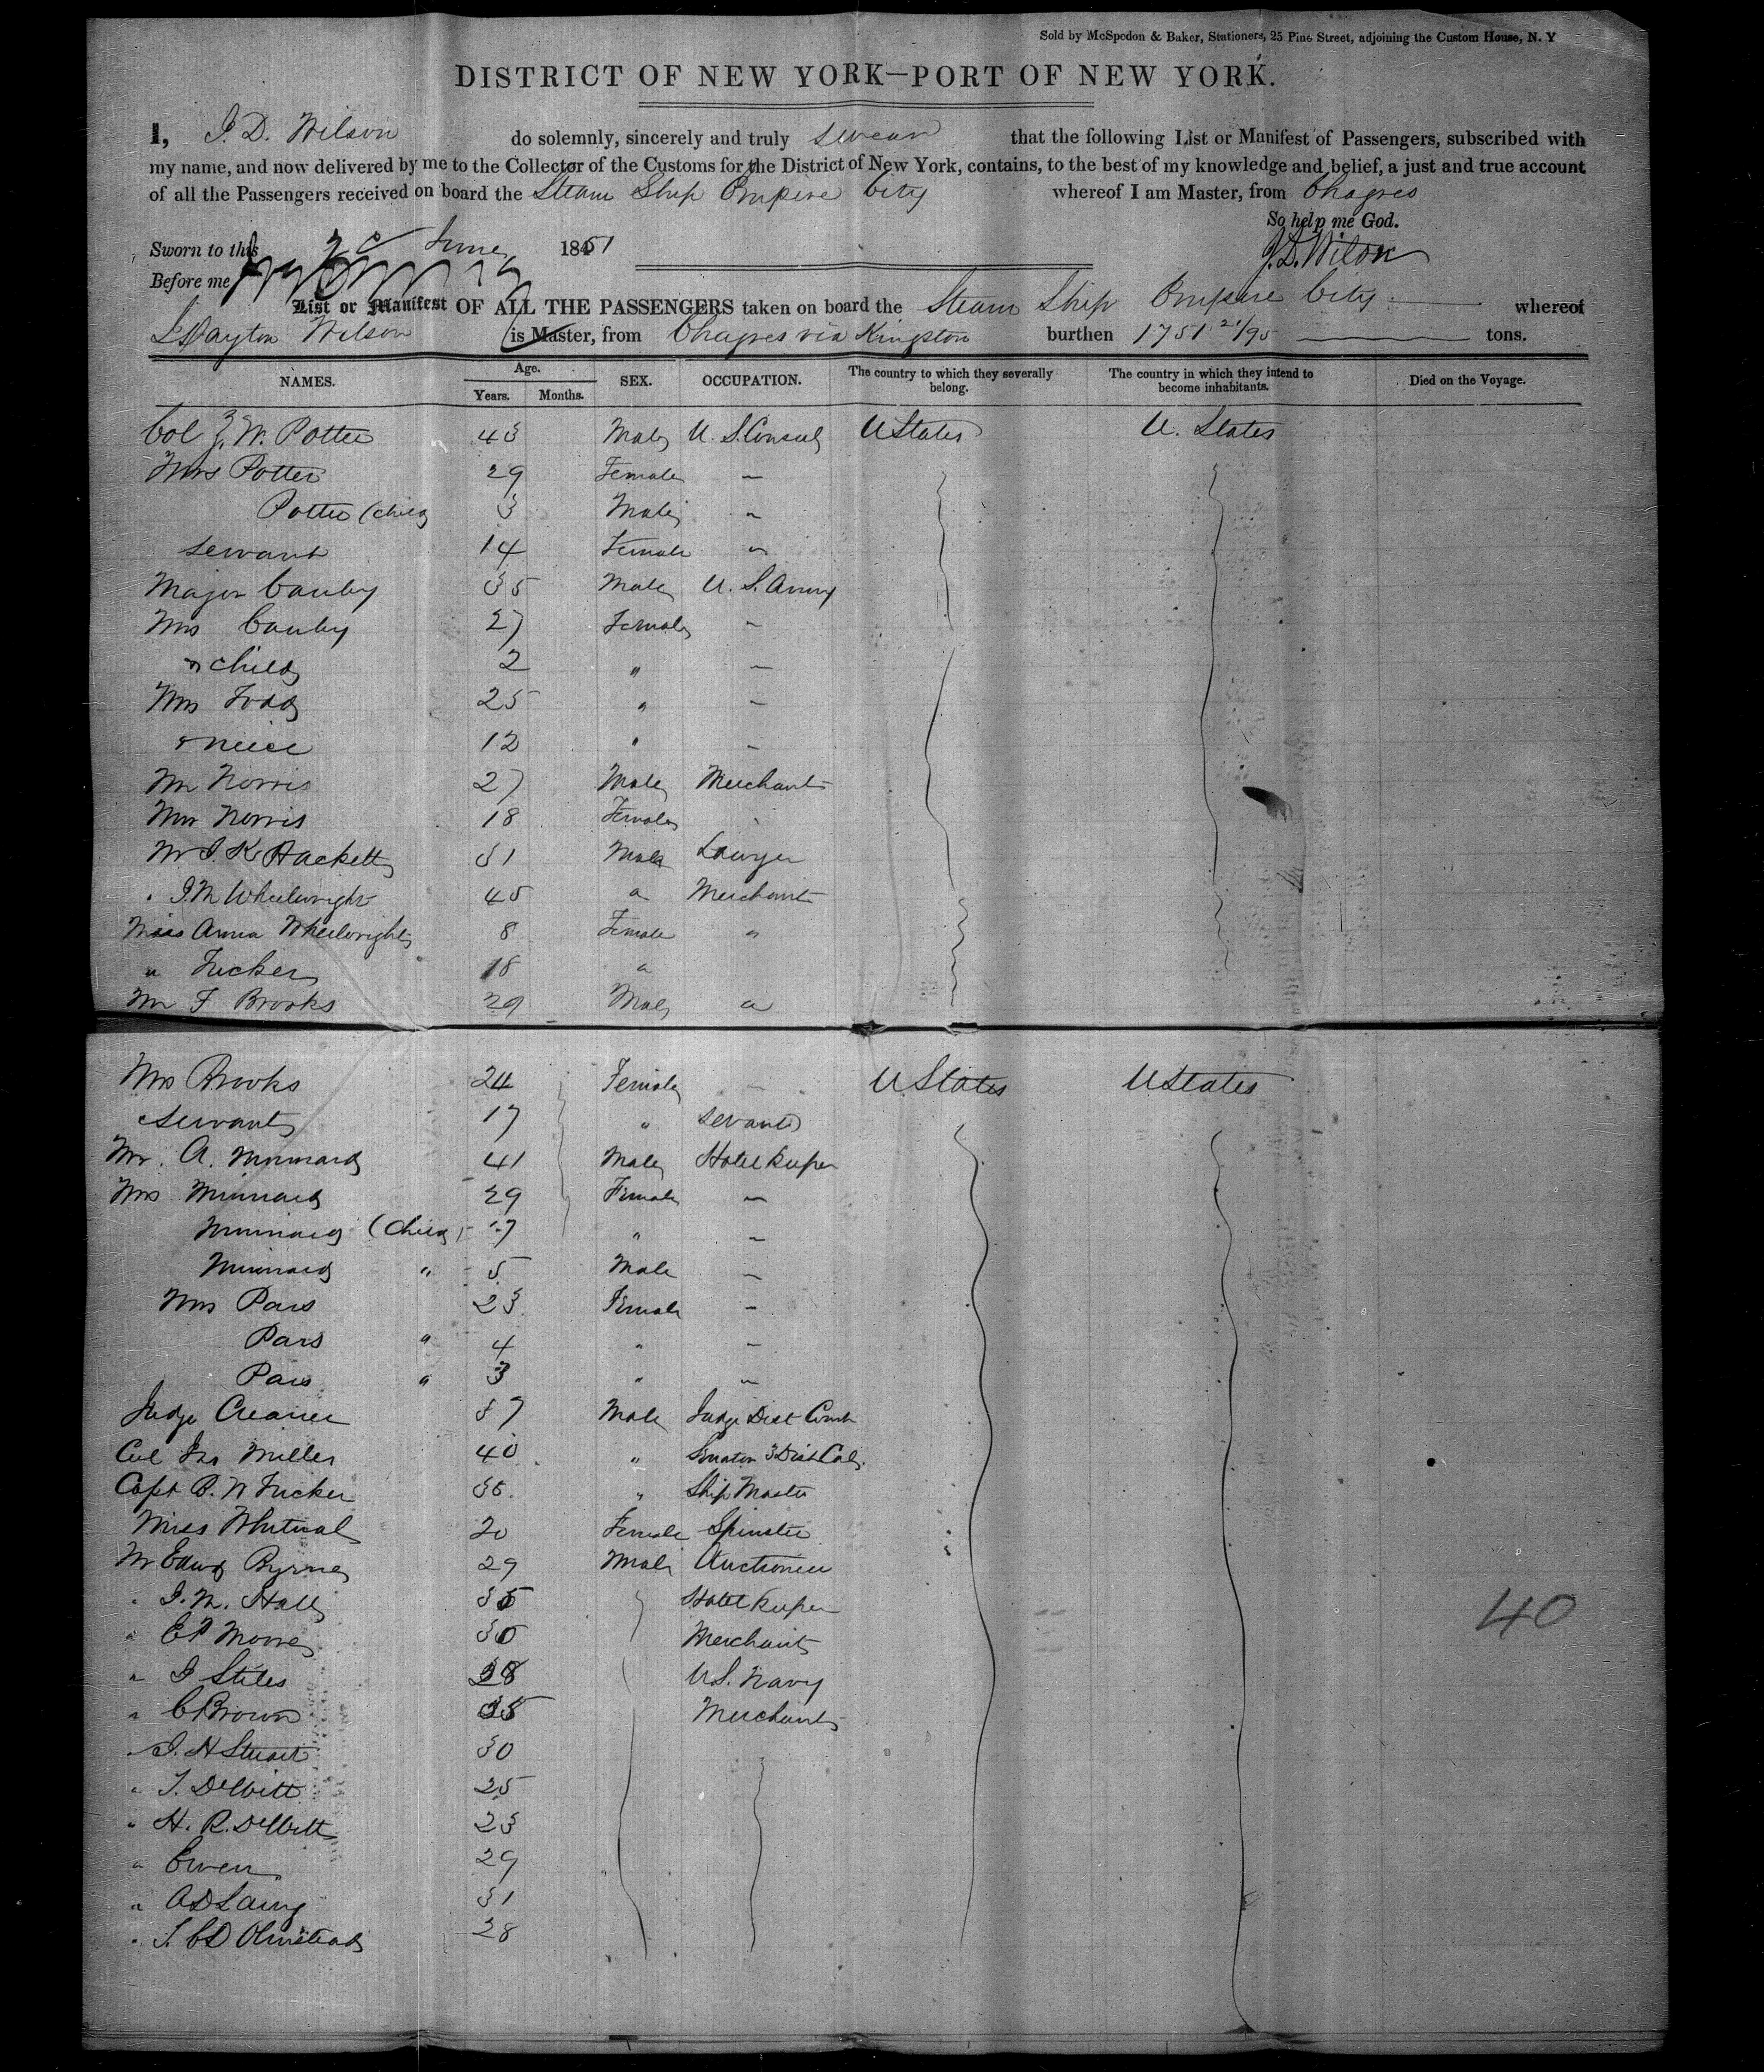 Sold by McSpedon & Baker, Stationers, 25 Pine Street, adjoining the Custom House, N. Y
DISTRICT OF NEW YORK—PORT OF NEW YORK.
I, J. D. Wilson do solemnly, sincerely and truly swear that the following List or Manifest of Passengers, subscribed with
my name, and now delivered by me to the Collector of the Customs for the District of New York, contains, to the best of my knowledge and belief, a just and true account
of all the Passengers received on board the Steam Ship Empire City whereof I am Master, from Chagres
So help me God.
Sworn to this June 1851
J. D. Wilson
Before me
List or Manifest OF ALL THE PASSENGERS taken on board the Steam Ship Empire City whereof
Dayton Wilson is Master, from Chagres via Kingston burthen 1751 21/95 tons.
NAMES. Age. Years. Months. SEX. OCCUPATION. The country to which they severally belong. The country in which they intend to become inhabitants. Died on the Voyage.
Col J. W. Potter 43 Male U. S. Consul U States U. States
Mrs Potter 29 Female —
Potter (child 3 Male "
servant 14 Female "
Major Canby 35 Male U. S. Army
Mrs Canby 27 Female "
" child 2 " —
Mrs Todd 25 " —
& neice 12 " —
Mr Norris 27 Male Merchant
Mrs Norris 18 Female
Mr J. K. Hackett 31 Male Lawyer
" J. M Wheelwright 45 " Merchant
Miss Anna Wheelwright 8 Female "
" Tucker 18 "
Mr F Brooks 29 Male "
Mrs Brooks 24 Female — U States U States
servant 17 " servant
Mr. A. Minnard 41 Male Hotel keeper
Mrs Minnard 29 Female —
Minnard (Child) 7 " —
Minnard " 5 Male —
Mrs Pars 23 Female —
Pars " 4 " —
Pars " 3 " —
Judge Creaner 37 Male Judge Dist Court
Col Jno Miller 40 " Senator 3 Dist Cal.
Capt B. N Tucker 35 " Ship Master
Miss Whitual 20 Female Spinster
Mr Edwd Byrne 29 Male Auctioneer
" J. M. Hall 35 Hotel keeper
" E P Moore 30 Merchant
" J Stiles 28 U.S. Navy
" C Brown 35 Merchant
" J. H Stuart 30
" T. DeWitt 25
" H. R. DeWitt 23
" Ewen 29
" A D Laing 31
" T. C D Olmstead 28
40